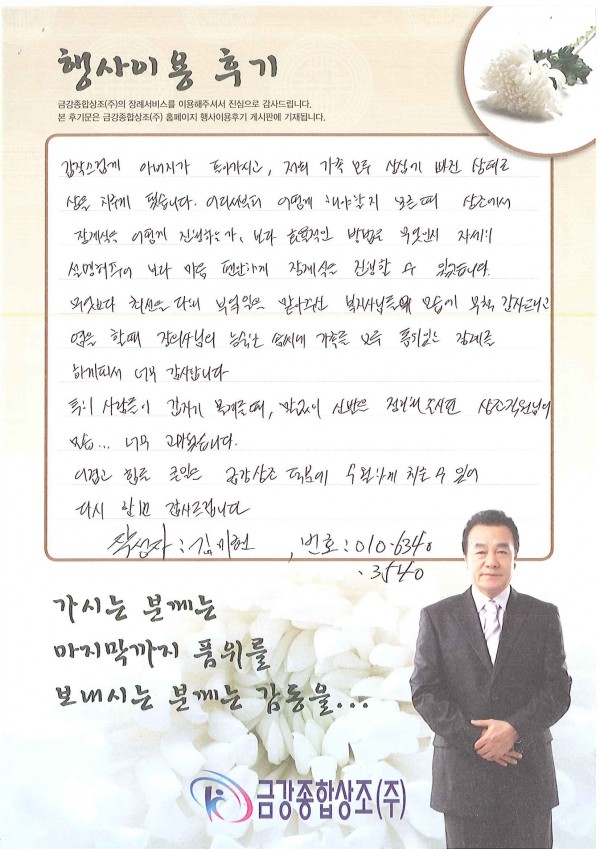 행사이용 후기
금강종합상조(주)의 장례서비스를 이용해주셔서 진심으로 감사드립니다.
본 후기문은 금강종합상조(주) 홈페이지 행사이용후기 게시판에 기재됩니다.
갑작스럽게 아버지가 돌아가시고, 저희 가족 모두 상심에 빠진 상태로
상을 치루게 됐습니다. 어디서부터 어떻게 해야할지 모를때 상조에서
장례식은 어떻게 진행하는가, 보다 효율적인 방법은 무엇인지 자세히
설명해주어 보다 마음 편안하게 장례식을 진행할 수 있었습니다.
무엇보다 최선을 다해 맡아주신 복지사님들의 모습에 무척 감사드리고
염을 할때 장의사님의 가족들 모두 품위있는 장례를
하게되서 너무 감사합니다
특히 사람들이 갑자기 몰려들때, 정리해주시던 상조직원님의
모습... 너무 고마웠습니다.
어렵고 힘든 금강상조 덕분에 수월하게 치룰 수 있어
다시 한번 감사드립니다
작성자 : 김미현 , 번호 : 010-6340
-3540
가시는 분께는
마지막까지 품위를
보내시는 분께는 감동을...
금강종합상조(주)